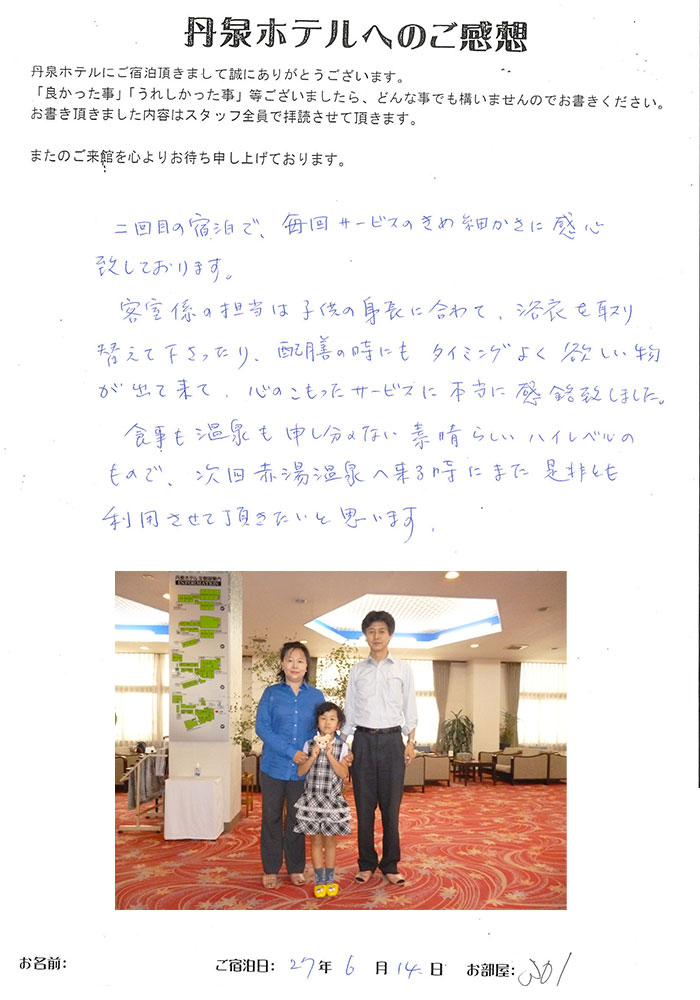 丹泉ホテルへのご感想
丹泉ホテルにご宿泊頂きまして誠にありがとうございます。
「良かった事」「うれしかった事」等ございましたら、どんな事でも構いませんのでお書きください。
お書き頂きました内容はスタッフ全員で拝読させて頂きます。
またのご来館を心よりお待ち申し上げております。
二回目の宿泊で、毎回サービスのきめ細かさに感心
致しております。
客室係の担当は子供の身長に合わせて、浴衣を取り
替えて下さったり、配膳の時にもタイミングよく欲しい物
が出て来て、心のこもったサービスに本当に感銘致しました。
食事も温泉も申し分のない素晴らしいハイレベルの
もので、次回赤湯温泉へ来る時にまた是非とも
利用させて頂きたいと思います。
丹泉ホテル全館案内
INFORMATION
お名前:
ご宿泊日: 27年 6月 14日
お部屋: